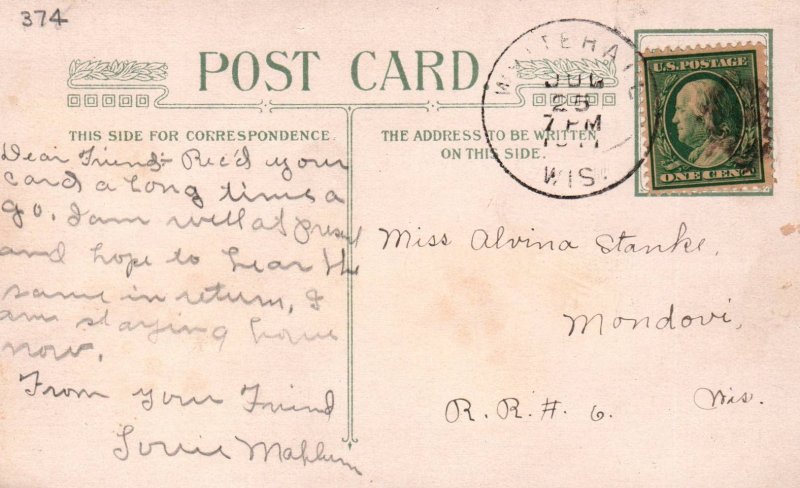 374
POST CARD.
WHITEHALL
JUL
25
7 PM
1911
WIS.
U.S. POSTAGE
ONE CENT
THIS SIDE FOR CORRESPONDENCE.
THE ADDRESS TO BE WRITTEN
ON THIS SIDE.
Dear Friend:- Rec'd your
card a long time a
go. I am well at present
and hope to hear the
same in return, I
am staying home
now.
From your Friend
Miss Alvina Stanke,
Mondovi,
R.R.#. 6. Wis.